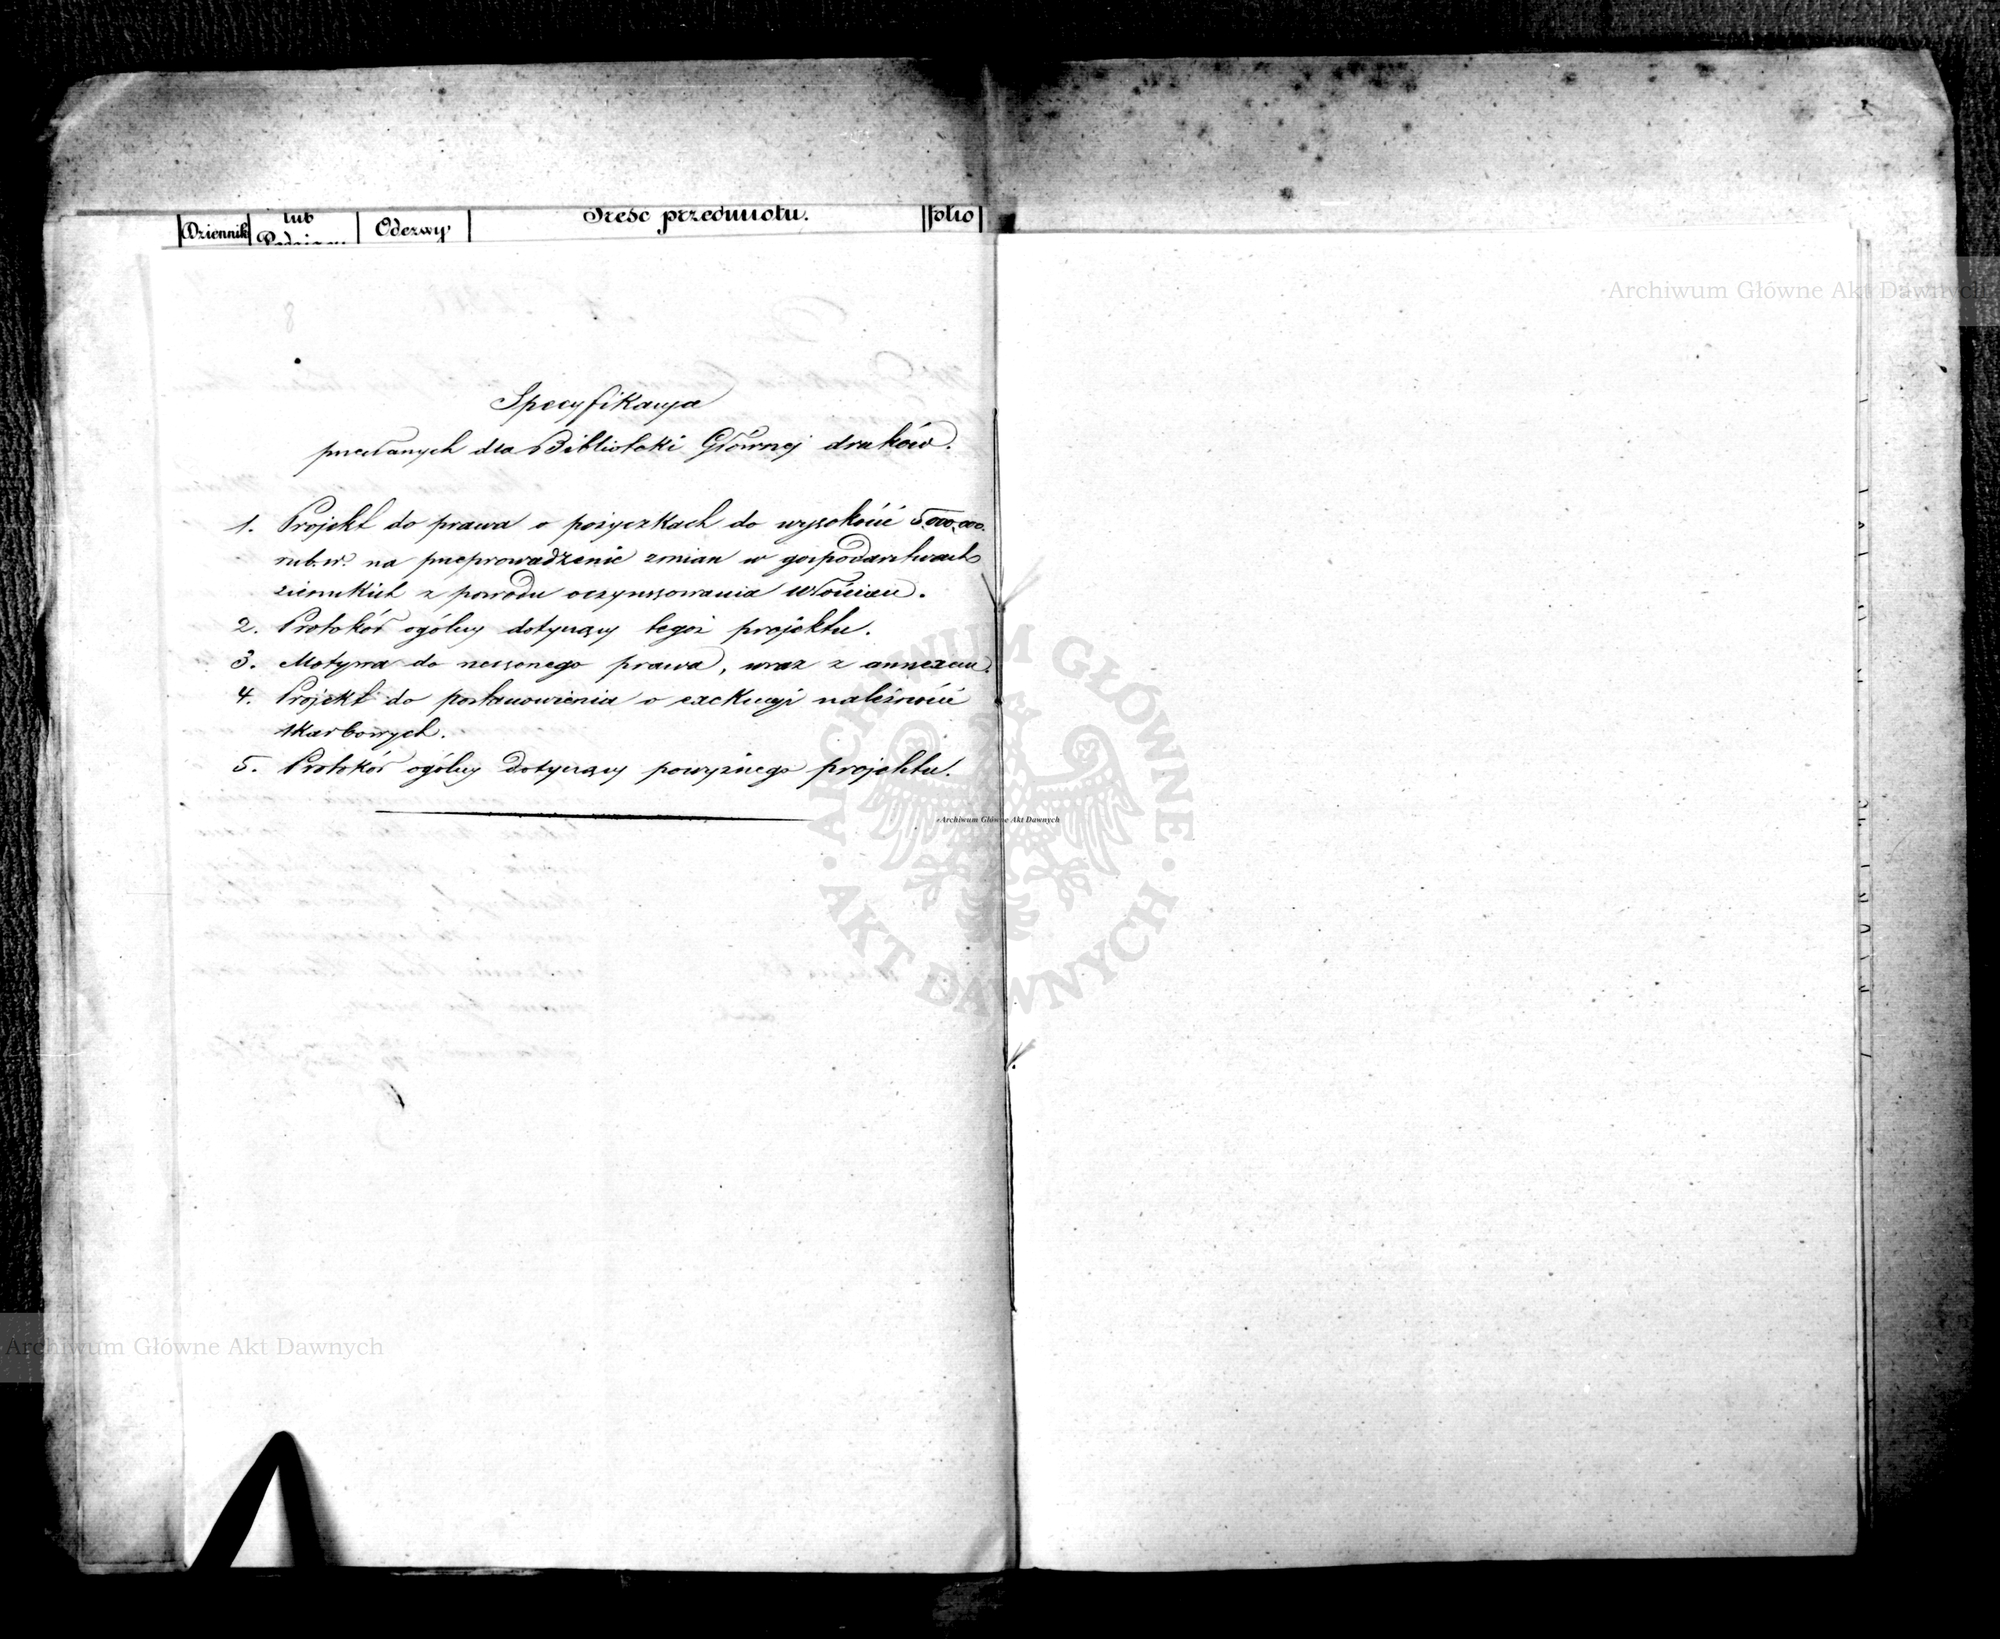 Dziennik
lub
Odezwy
Treść przedmiotu.
folio
Specyfikacya
przesłanych dla Biblioteki Głównej druków.
1. Projekt do prawa o pożyczkach do wysokości 5,000,000.
rub. sr. na przeprowadzenie zmian w gospodarstwach
ziemskich z powodu oczynszowania Włościan.
2. Protokół ogólny dotyczący tegoż projektu.
3. Motywa do rzeczonego prawa, wraz z annexem.
4. Projekt do postanowienia o exekucyi należności
skarbowych.
5. Protokół ogólny dotyczący powyższego projektu.
Archiwum Główne Akt Dawnych
Archiwum Główne Akt Dawnych
Archiwum Główne Akt Dawnych
ARCHIWUM GŁÓWNE
AKT DAWNYCH